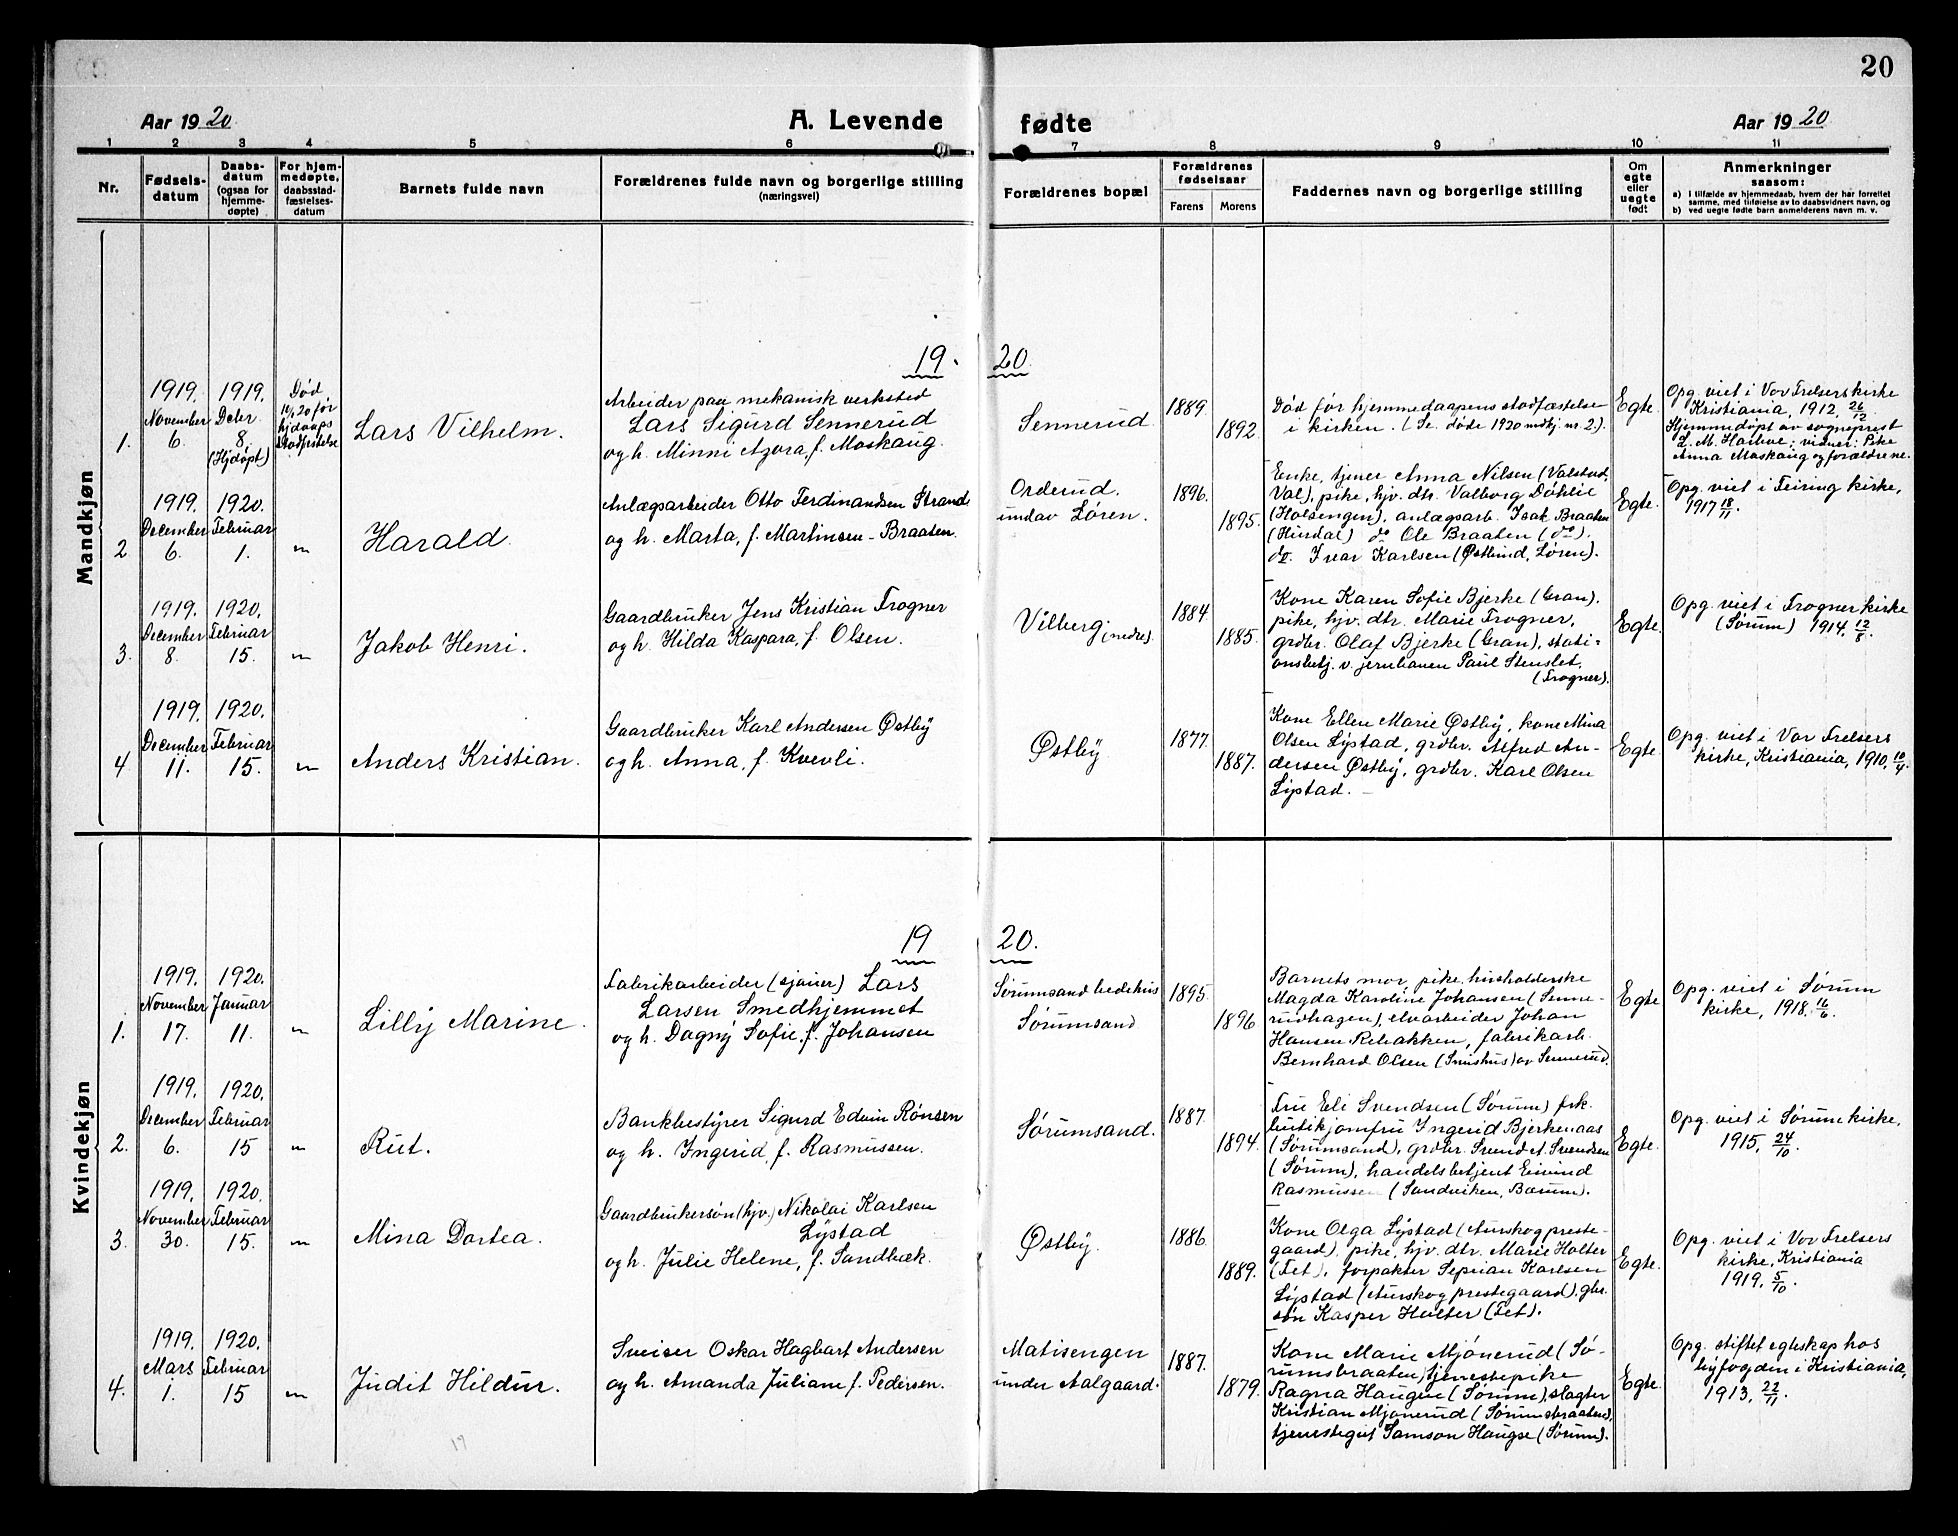 20
Aar 1920
A. Levende
fødte
Aar 1920
1 2 3 4 5 6 7 8 9 10 11
Nr.
Fødsels-
datum
Daabs-
datum
(ogsaa for
hjemme-
døpte)
For hjem-
medøpte,
daabsstad-
fæstelses-
datum
Barnets fulde navn
Forældrenes fulde navn og borgerlige stilling
(næringsvei)
Forældrenes bopæl
Forældrenes
fødselsaar
Farens Morens
Faddernes navn og borgerlige stilling
Om
egte
eller
uegte
født
Anmerkninger
saasom:
a) I tilfælde av hjemmedaab, hvem der har forrettet
samme, med tilføielse av to daabsvidners navn, og
b) ved uegte fødte barn anmelderens navn m. v.
Mandkjøn
19. 20.
1.
1919.
November
6.
1919.
Decbr
8.
(Hjdøpt)
Død
før
hjdaaps
stadfæstelse
Lars Vilhelm.
Arbeider paa mekanisk verksted
Lars Sigurd Sennerud
og h. Minni Azora, f. Moskaug.
Sennerud.
1889.
1892.
Død før hjemmedaapens stadfæstelse
i kirken. (Se døde 1920 mdkj. nr. 2.)
Egte.
Opg. viet i Vor Frelsers kirke
Kristiania, 1912, 26/12
Hjemmedøpt av sogneprest
L. M. Harboe; vidner: Pike
Anna Moskaug og forældrene.
2
1919.
December
6.
1920.
Februar
1.
"
Harald.
Anlægsarbeider Otto Ferdinandsen Strand
og h. Marta, f. Martinsen-Braaten.
Orderud.
undav Løren.
1896.
1895.
Enke, tjener Anna Nilsen (Valstad,
Val), pike, hjv. dtr. Valborg Døhlie
(Holsengen), anlægsarb. Isak Braaten
(Hurdal) do Ole Braaten (do).
do. Ivar Karlsen (Østlund, Løren).
Egte.
Opg. viet i Feiring kirke,
1917 18/11.
3.
1919.
December
8.
1920.
Februar
15.
"
Jakob Henri.
Gaardbruker Jens Kristian Frogner
og h. Hilda Kaspara, f. Olsen.
Vilberg (nedre).
1884.
1885.
Kone Karen Sofie Bjerke (Gran).
pike, hjv. dtr. Marie Frogner,
grdbr. Olaf Bjerke (Gran), stati-
onsbetj. v. jernbanen Paul Stenslet,
(Frogner).
Egte.
Opg. viet i Frogner kirke
(Sørum) 1914, 12/8.
4
1919.
December
11.
1920.
Februar
15.
"
Anders Kristian.
Gaardbruker Karl Andersen Østby
og h. Anna, f. Kvevli.
Østby.
1877.
1887.
Kone Ellen Marie Østby, kone Mina
Olsen Lystad, grdbr. Alfred An-
dersen Østby, grdbr. Karl Olsen
Lystad.
Egte.
Opg. viet i Vor Frelsers
kirke, Kristiania, 1910, 10/4.
Kvindekjøn
19 20.
1.
1919.
November
17.
1920.
Januar
11.
"
Lilly Marine.
Fabrikarbeider (sjauer) Lars
Larsen Smedhjemmet
og h. Dagny Sofie, f. Johansen
Sørumsand bedehus
Sørumsand
1895.
1896
Barnets mor, pike, husholderske
Magda Karoline Johansen (Senne-
rudhagen), elvarbeider Johan
Hansen Rebakken, fabrikarb.
Bernhard Olsen (Smishus) av Sennerud.
Egte
Opg. viet i Sørum
kirke, 1918, 16/6.
2.
1919.
December
6.
1920.
Februar
15
"
Rut.
Bankbestyrer Sigurd Edvin Rønsen
og h. Ingerid, f. Rasmussen.
Sørumsand.
1887.
1894.
Fru Eli Svendsen (Sørum) frk.
butikjomfru Ingerid Bjerkenaas
(Sørumsand), grdbr. Svend A. Svendsen
(Sørum), handelsbetjent Eivind
Rasmussen (Sandviken, Bærum).
Egte.
Opg. viet i Sørum kirke,
1915, 24/10.
3.
1919.
November
30.
1920.
Februar
15.
"
Mina Dortea.
Gaardbrukersøn (hjv.) Nikolai Karlsen
Lystad
og h. Julie Helene, f. Sandbæk.
Østby.
1886.
1889.
Kone Olga Lystad (Aurskog preste-
gaard), pike, hjv. dtr. Marie Holter
(Fet), forpakter Seprian Karlsen
Lystad (Aurskog prestegaard), gbr.
søn Kasper Hulter (Fet).
Egte.
Opg. viet i Vor Frelsers
kirke, Kristiania
1919, 5/10.
4.
1919.
Mars
1.
1920.
Februar
15
"
Judit Hildur.
Sveiser Oskar Hagbart Andersen
og h. Amanda Juliane f. Pedersen.
Matisengen
under Aalgaard.
1887.
1879.
Kone Marie Mjønerud (Sø-
rumsbraaten) tjenestepike
Ragna Haugen (Sørum), slagter
Kristian Mjønerud (Sørumsbraaten),
tjenestegut Samson Haugse (Sørum).
Egte.
Opg. stiftet egteskap hos
byfogden i Kristiania,
1913, 22/11.
19